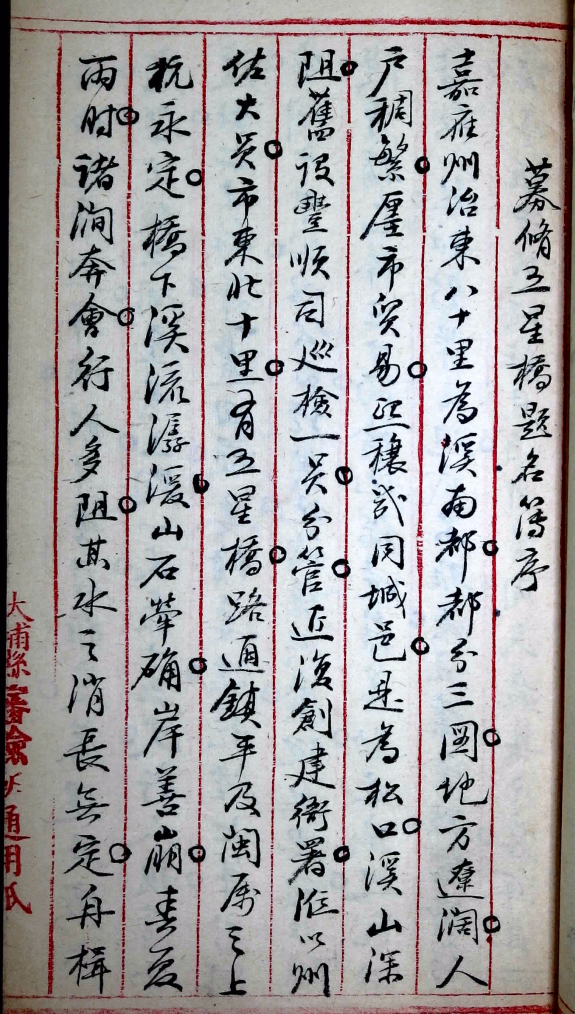 募脩五星橋題名簿序
嘉應州治東八十里為溪南都都分三圖地方遼濶人
戶稠繁廛市貿易熙穰武同城邑是為松口溪山深
阻舊設豐順司巡檢一員分管近復創建衙署涖以州
佐大員市東北十里有五星橋路通鎮平及閩屬之上
杭永定橋下溪流潺湲山石犖确岸善崩春夏
雨時諸澗奔會行人多阻其水之消長無定舟楫
大埔縣審檢所通用紙